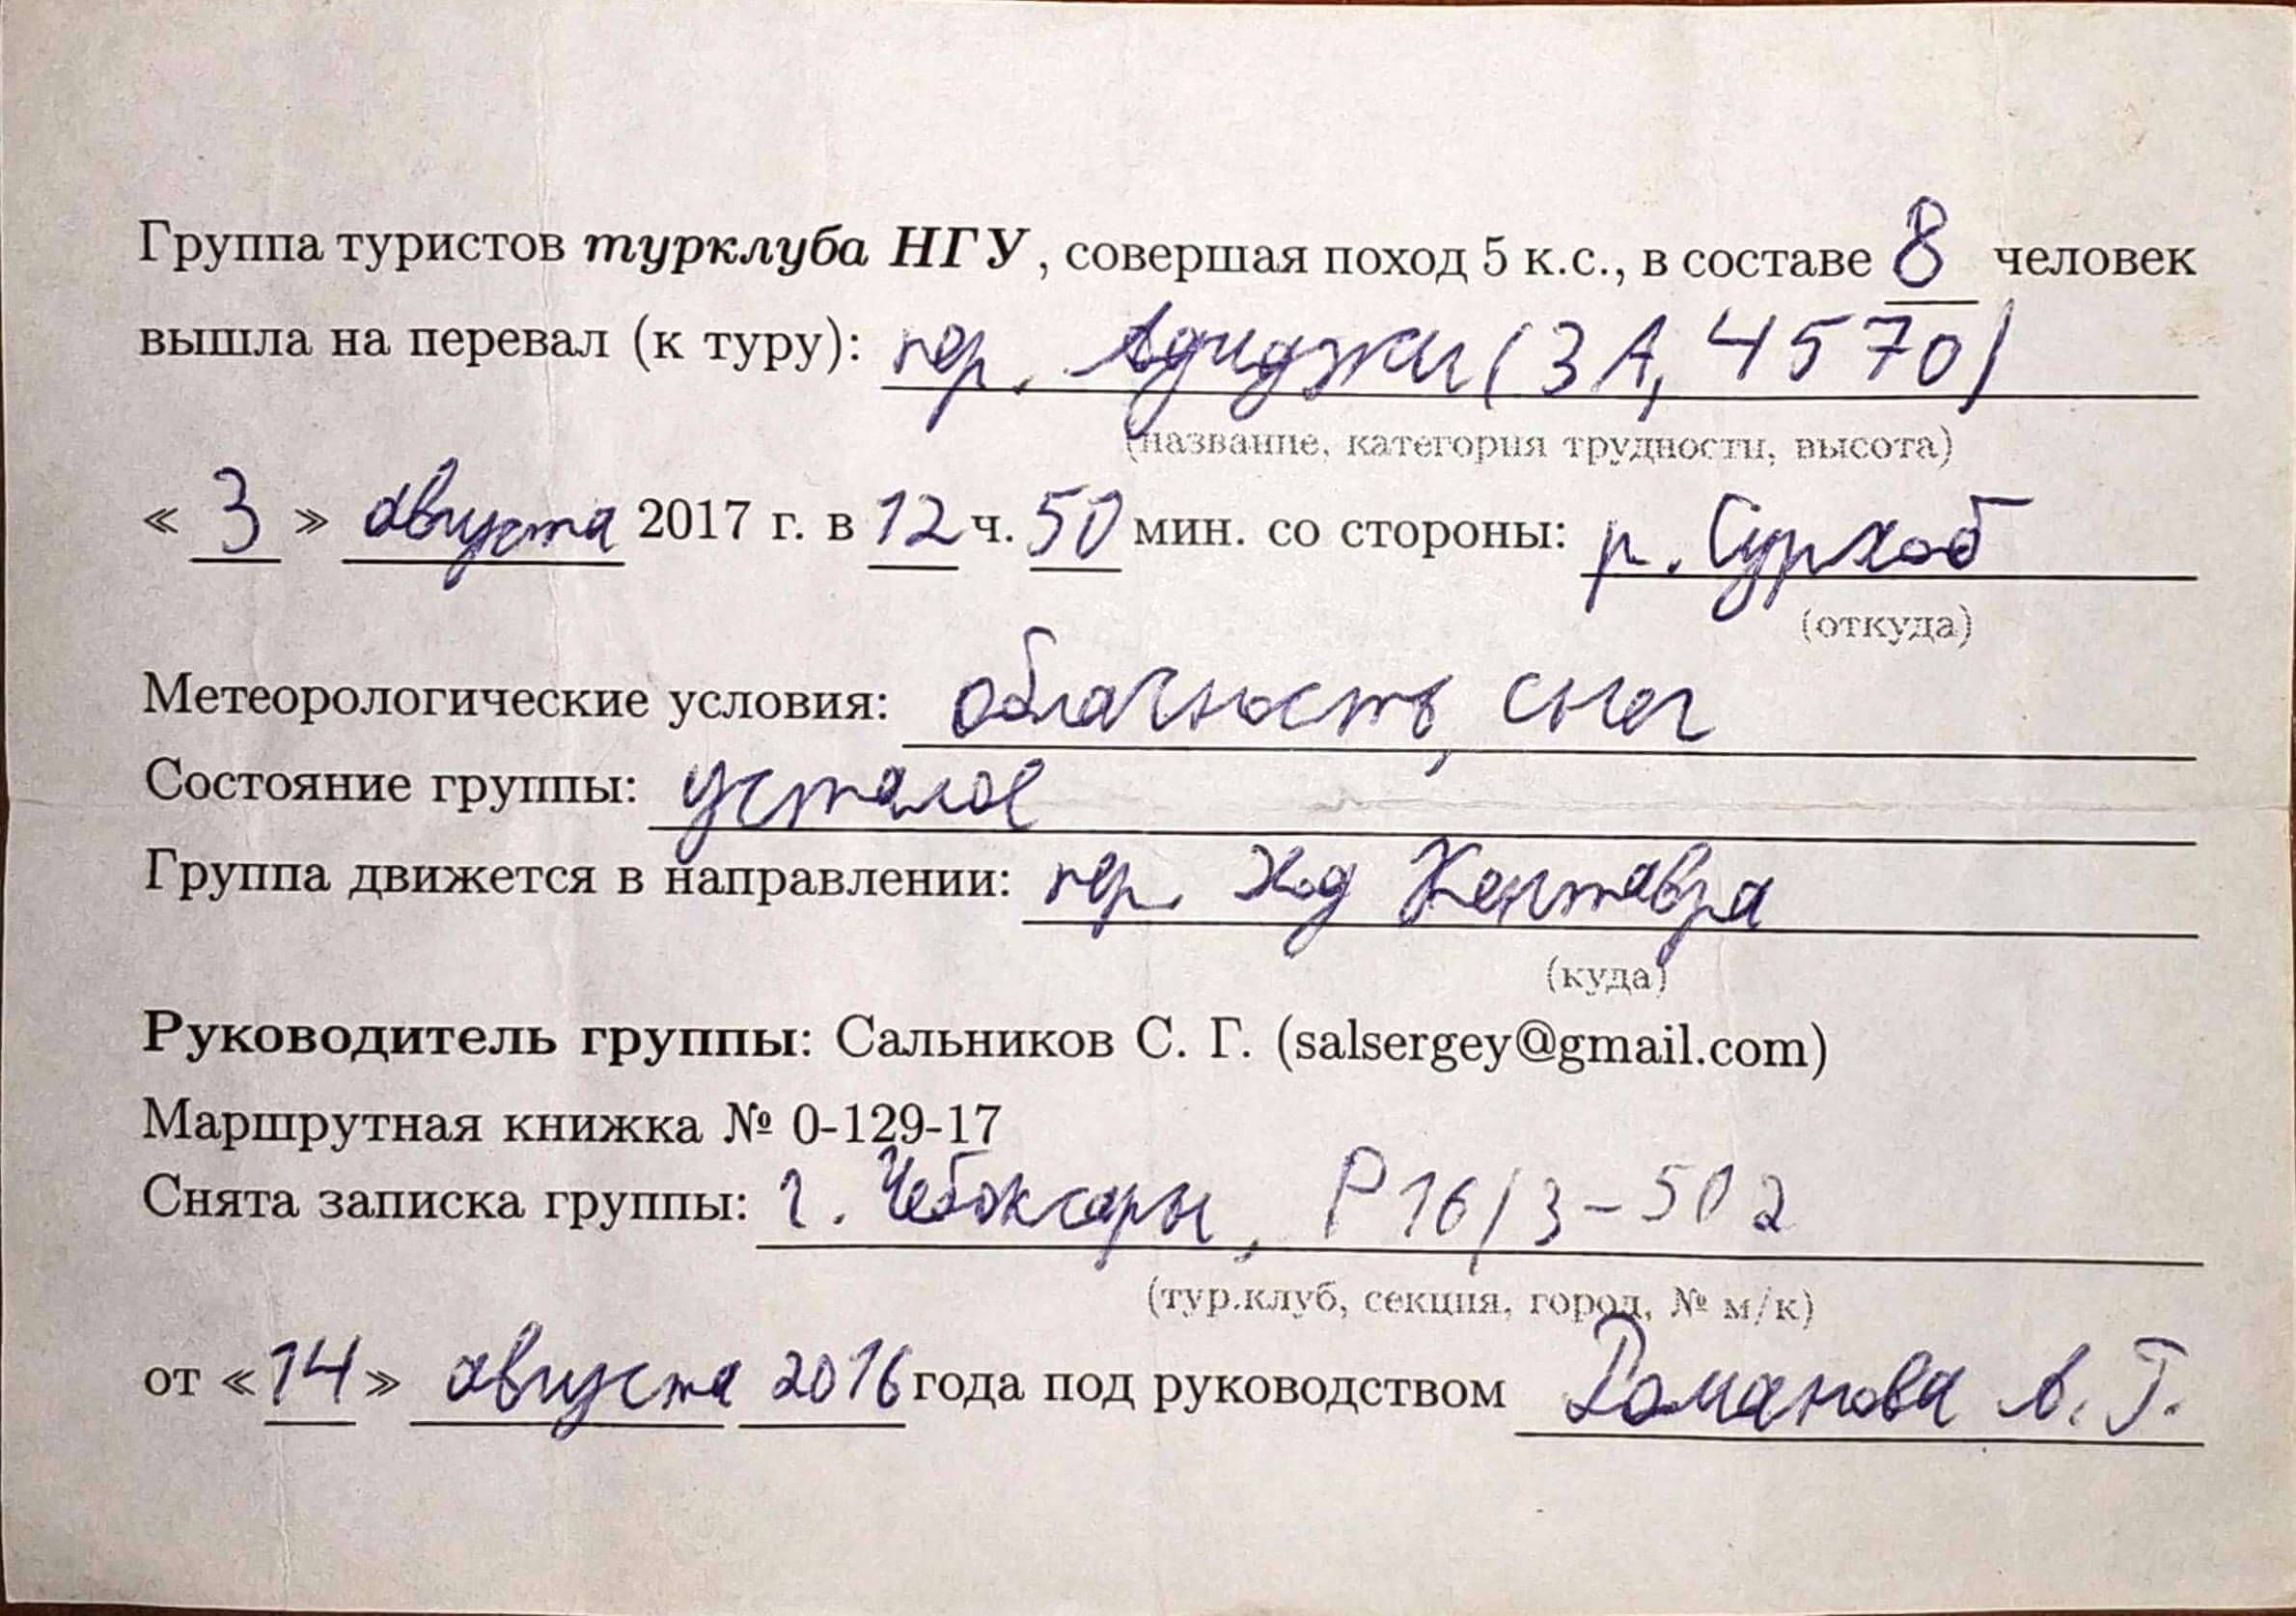 Группа туристов турклуба НГУ, совершая поход 5 к.с., в составе 8 человек
вышла на перевал (к туру): пер. Адиджи (3А, 4570)
(название, категория трудности, высота)
« 3 » августа 2017 г. в 12 ч. 50 мин. со стороны: р. Сурхоб
(откуда)
Метеорологические условия: облачность, снег
Состояние группы: усталое
Группа движется в направлении: пер. Ход Кентавра
(куда)
Руководитель группы: Сальников С. Г. (salsergey@gmail.com)
Маршрутная книжка № 0-129-17
Снята записка группы: г. Чебоксары, Р16/3-502
(тур.клуб, секция, город, № м/к)
от «14» августа 2016 года под руководством Романова А. Г.